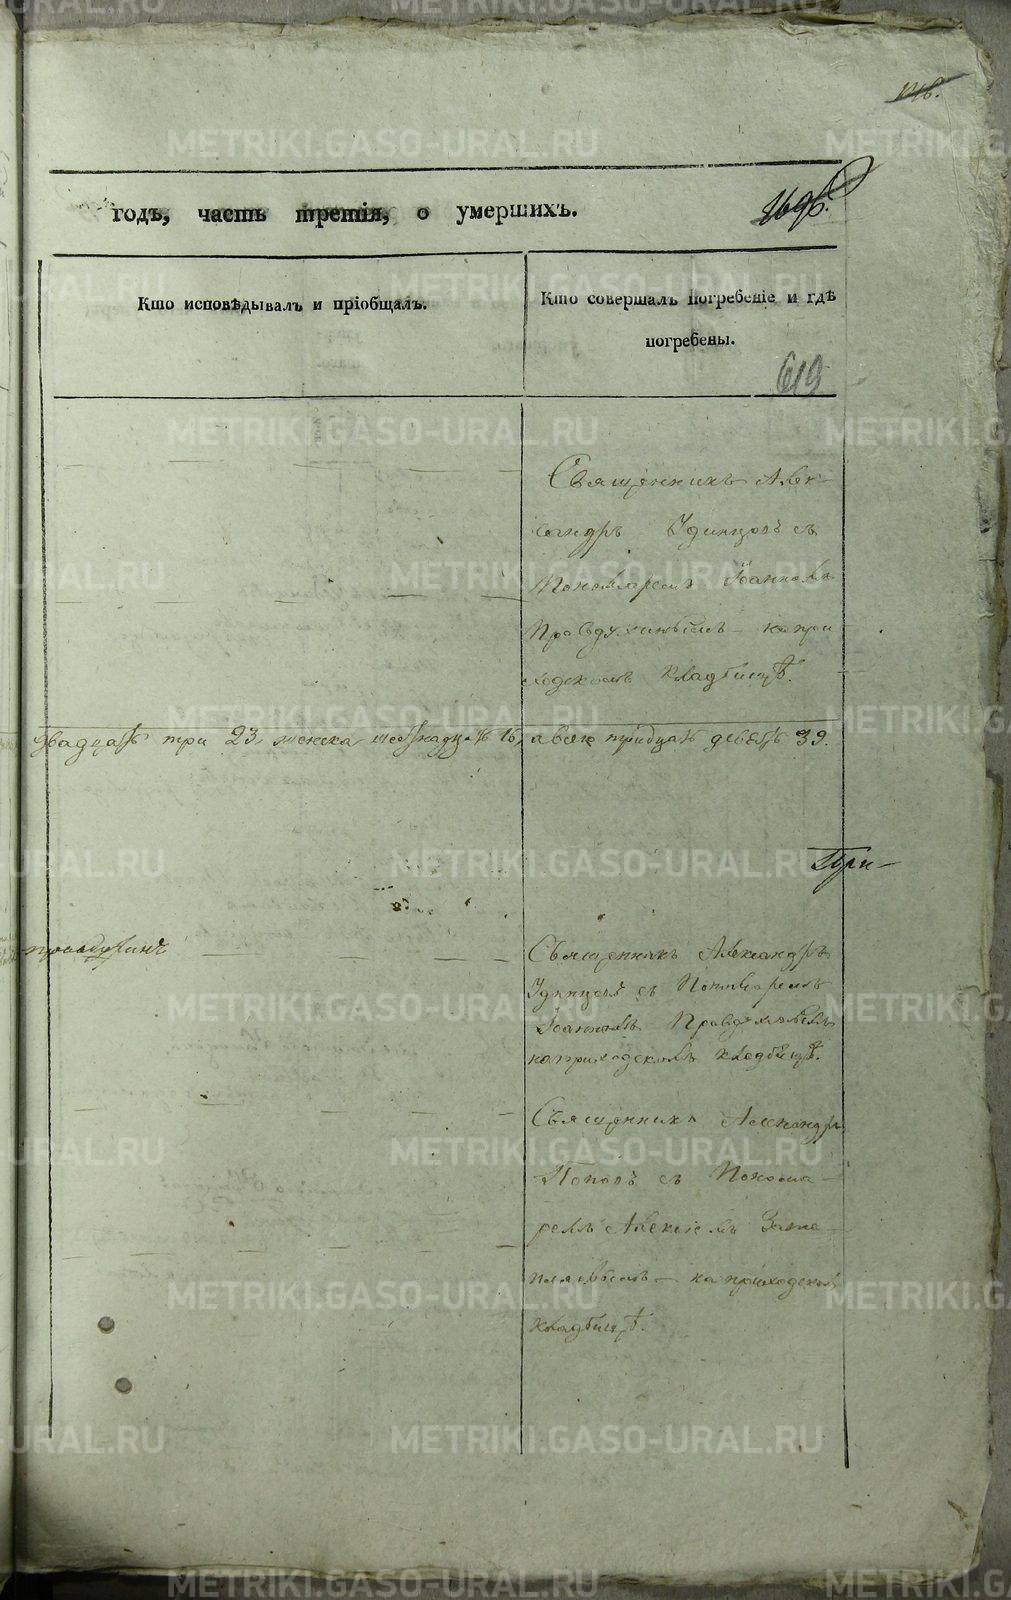 годъ, часть третія, о умершихъ.
Кто исповѣдывалъ и пріобщалъ.
Кто совершалъ погребеніе и гдѣ
погребены.
619
Священникъ Алек-
сандръ Удинцовъ съ
Пономаремъ Іоанномъ
Правдухинымъ на при
ходскомъ кладбищѣ.
двадцать три 23, женска шестнадцать 16,
а всѣхъ тридцать девять 39.
При-
Правдухинъ
Священникъ Александръ
Удинцовъ съ Пономаремъ
Іоанномъ Правдухинымъ
на приходскомъ кладбищѣ.
Священникъ Александръ
Поповъ съ Понома-
ремъ Алексіемъ
на приходскомъ
кладбищѣ.
METRIKI.GASO-URAL.RU